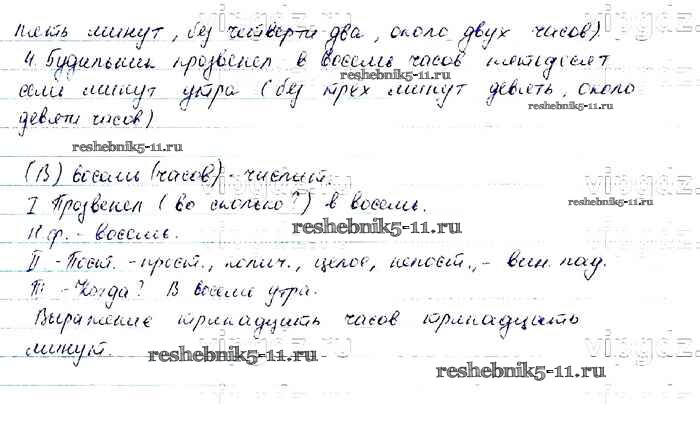 пять минут, без четверти два, около двух часов).
4. Будильник прозвенел в восемь часов пятьдесят
reshebnik5-11.ru
семь минут утра (без трёх минут девять, около
reshebnik5-11.ru
девяти часов)
reshebnik5-11.ru
(В) восемь (часов) - числит.
I Прозвенел (во сколько?) в восемь.
reshebnik5-11.ru
Н.ф. - восемь.
II - Пост. - прост., колич., целое, непост., - вин. пад.
III - Когда? В восемь утра.
Выражение тринадцать часов тринадцать
минут.
reshebnik5-11.ru
reshebnik5-11.ru